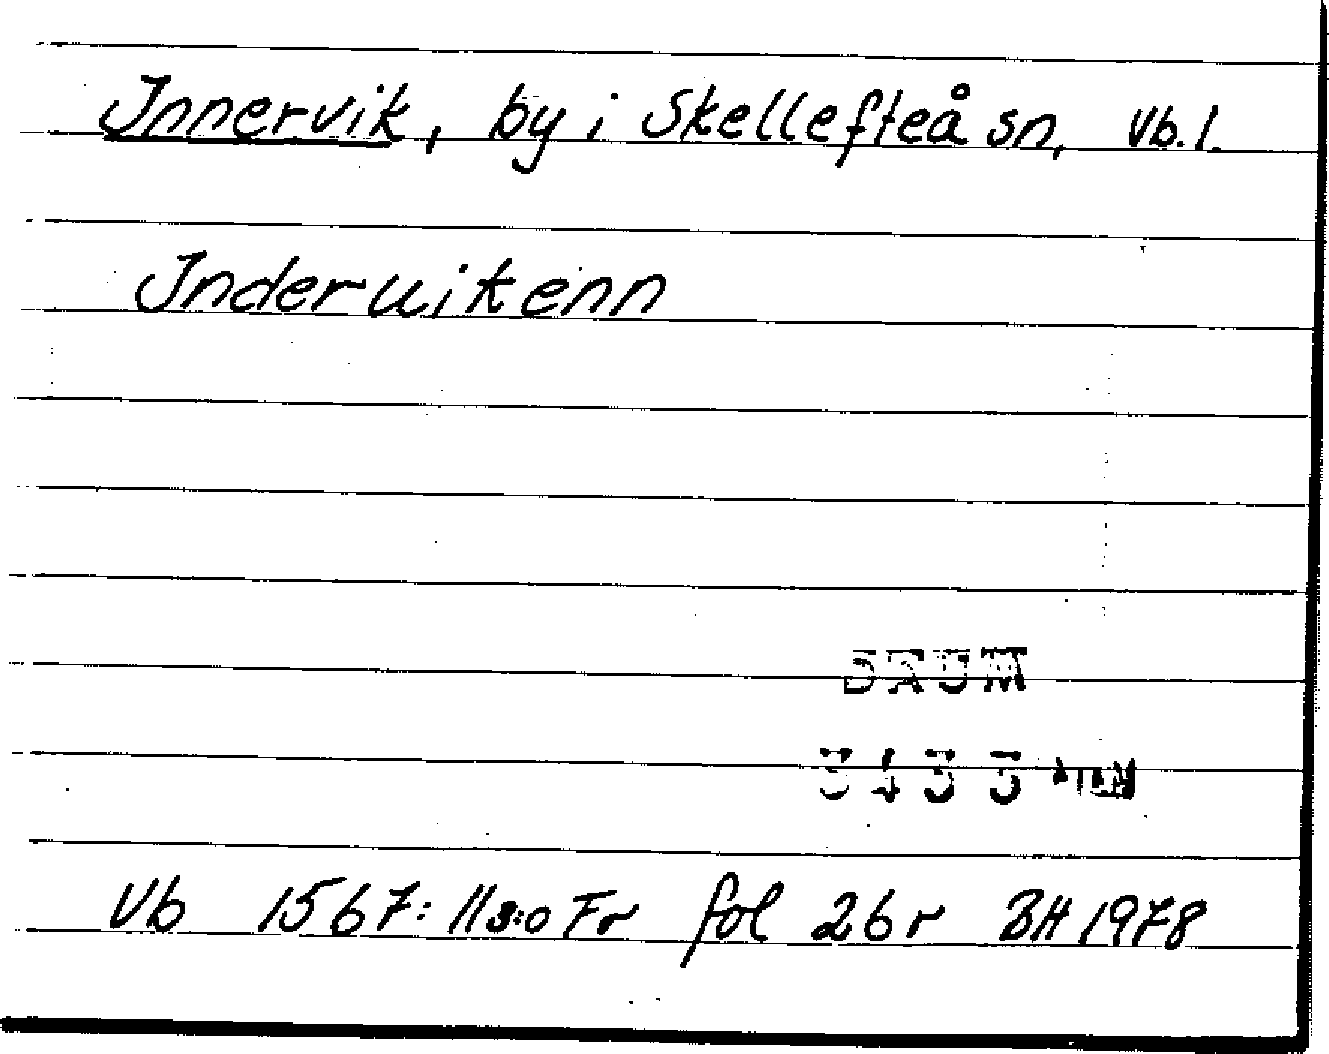 Innervik, by i Skellefteå sn, Vb. l.
Inderuikenn
DAUM
Vb 1567: 11 s:o Fr fol 26 r BH 1978